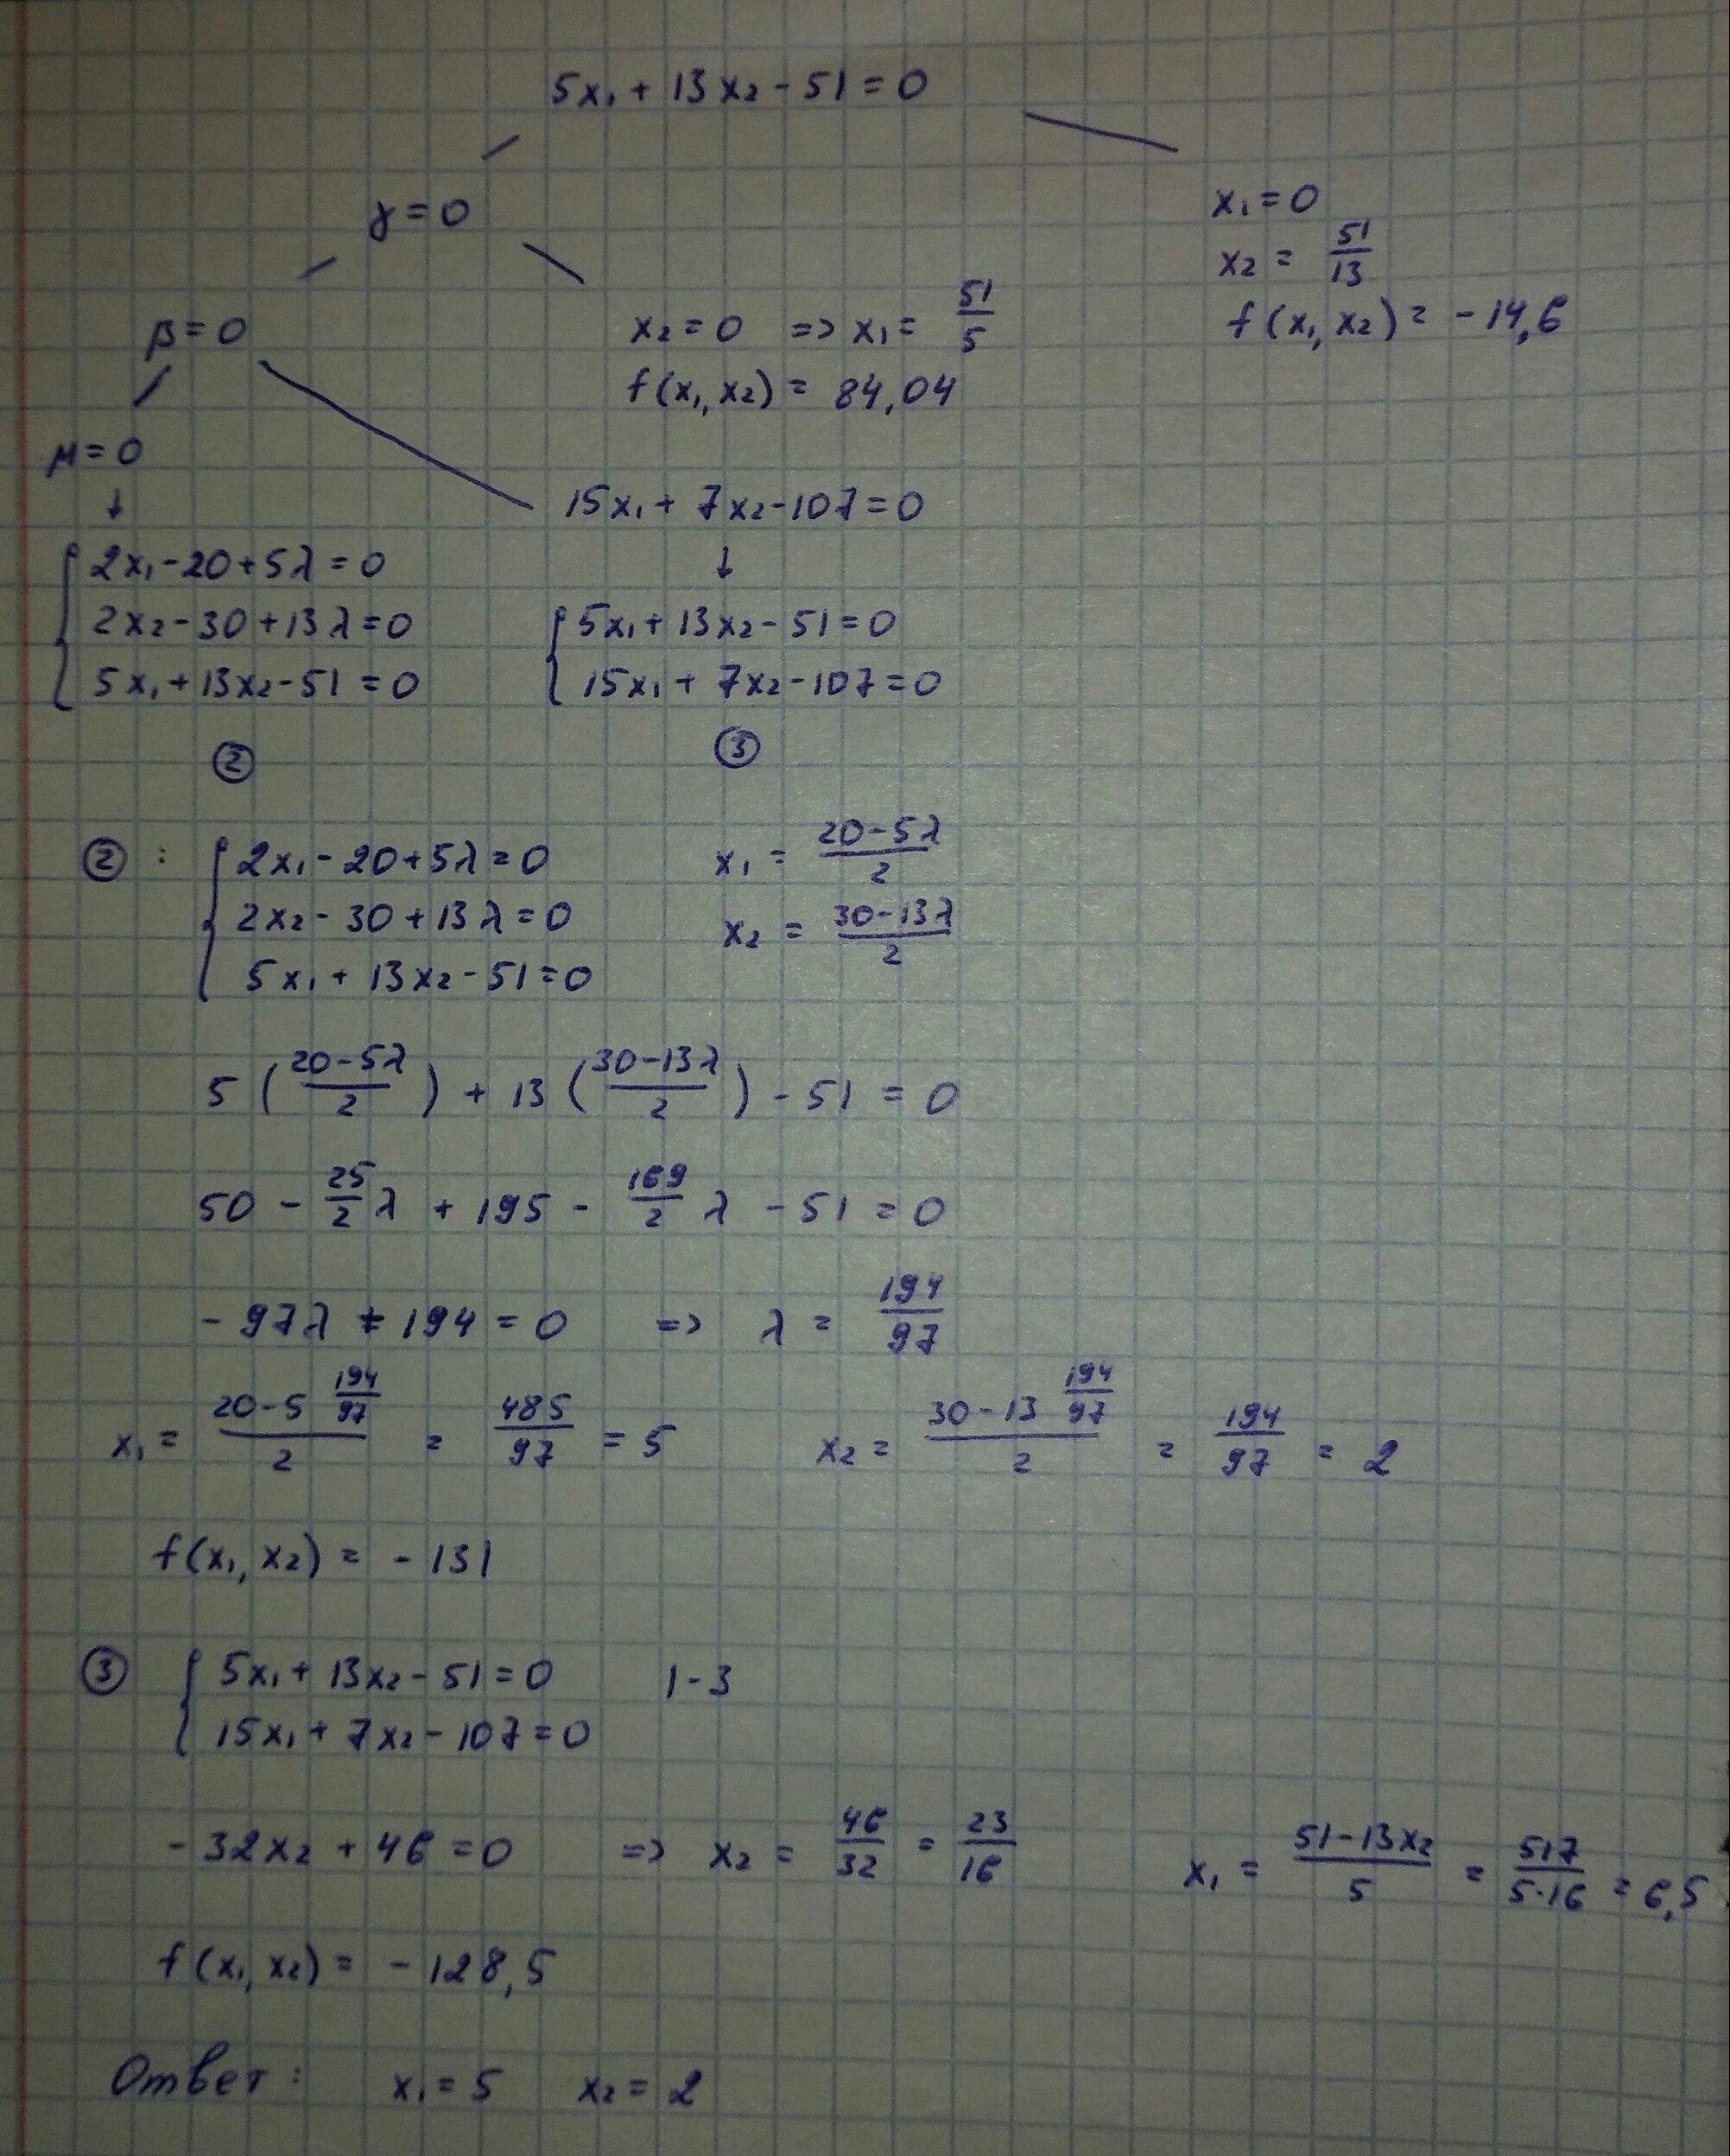 5x₁ + 13x₂ - 51 = 0
γ = 0
x₁ = 0
x₂ = 51/13
f(x₁, x₂) = -14,6
β = 0
x₂ = 0 => x₁ = 51/5
f(x₁, x₂) = 84,04
μ = 0
↓
15x₁ + 7x₂ - 107 = 0
↓
{ 2x₁ - 20 + 5λ = 0
2x₂ - 30 + 13λ = 0
5x₁ + 13x₂ - 51 = 0
②
{ 5x₁ + 13x₂ - 51 = 0
15x₁ + 7x₂ - 107 = 0
③
② : { 2x₁ - 20 + 5λ = 0
2x₂ - 30 + 13λ = 0
5x₁ + 13x₂ - 51 = 0
x₁ = (20 - 5λ)/2
x₂ = (30 - 13λ)/2
5((20 - 5λ)/2) + 13((30 - 13λ)/2) - 51 = 0
50 - 25/2 λ + 195 - 169/2 λ - 51 = 0
- 97λ + 194 = 0 => λ = 194/97
x₁ = (20 - 5 194/97)/2 = 485/97 = 5 x₂ = (30 - 13 194/97)/2 = 194/97 = 2
f(x₁, x₂) = - 131
③ { 5x₁ + 13x₂ - 51 = 0 | - 3
15x₁ + 7x₂ - 107 = 0
- 32x₂ + 46 = 0 => x₂ = 46/32 = 23/16 x₁ = (51 - 13x₂)/5 = 517/(5·16) = 6,5
f(x₁, x₂) = - 128,5
Ответ: x₁ = 5 x₂ = 2